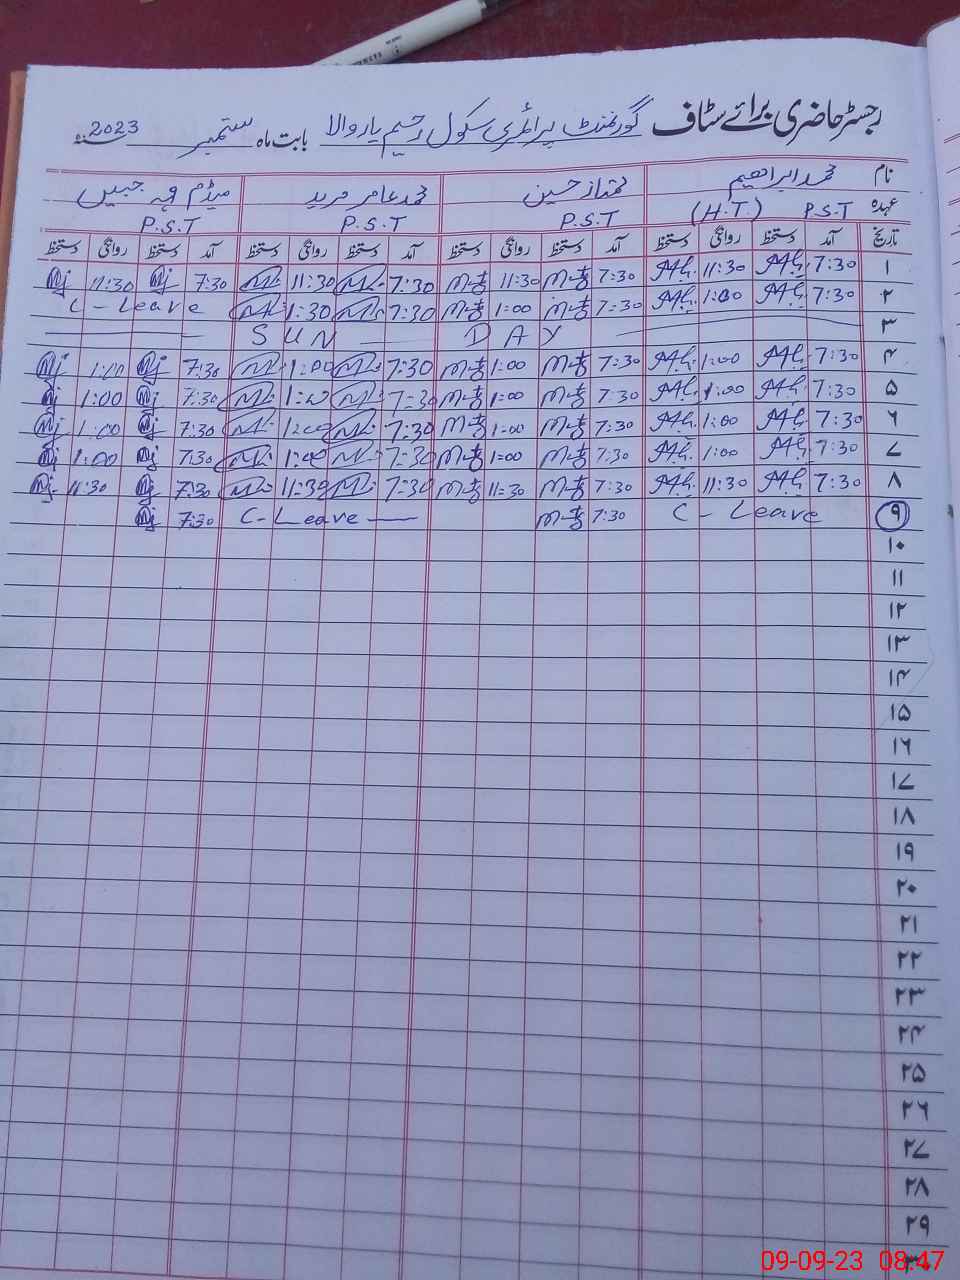 رجسٹر حاضری برائے سٹاف گورنمنٹ پرائمری سکول رحیم یار والا بابت ماہ ستمبر 2023
نام محمد ابراھیم ممتاز حسین محمد عامر مرید میڈم مہ جبیں
عہدہ P.S.T (H.T.) P.S.T P.S.T P.S.T
تاریخ آمد دستخط روانگی دستخط آمد دستخط روانگی دستخط آمد دستخط روانگی دستخط آمد دستخط روانگی دستخط
۱ 7:30 11:30 7:30 11:30 7:30 11:30 7:30 11:30
۲ 7:30 1:00 7:30 1:00 7:30 1:30 C - Leave
۳ SUN DAY
۴ 7:30 1:00 7:30 1:00 7:30 1:00 7:30 1:00
۵ 7:30 1:00 7:30 1:00 7:30 1:00 7:30 1:00
۶ 7:30 1:00 7:30 1:00 7:30 1:00 7:30 1:00
۷ 7:30 1:00 7:30 1:00 7:30 1:00 7:30 1:00
۸ 7:30 11:30 7:30 11:30 7:30 11:30 7:30 11:30
۹ C - Leave 7:30 C - Leave 7:30
۱۰
۱۱
۱۲
۱۳
۱۴
۱۵
۱۶
۱۷
۱۸
۱۹
۲۰
۲۱
۲۲
۲۳
۲۴
۲۵
۲۶
۲۷
۲۸
۲۹
09-09-23 08:47